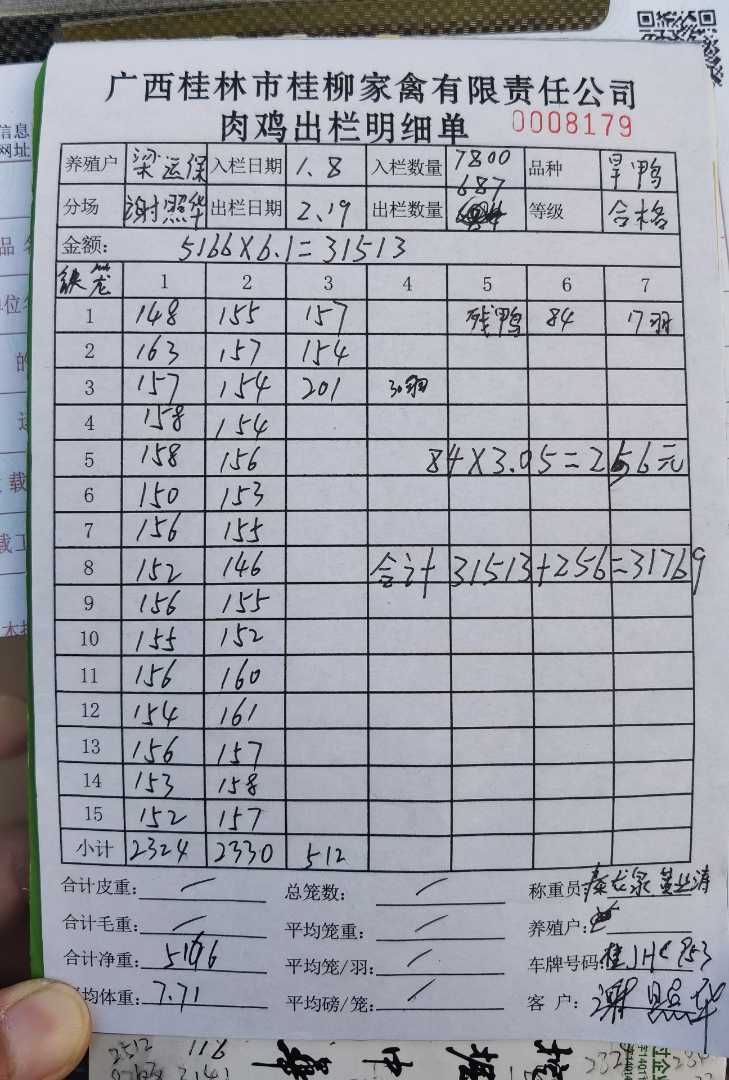 广西桂林市桂柳家禽有限责任公司
肉鸡出栏明细单 0008179
养殖户 梁运保 入栏日期 1.8 入栏数量 7800 品种 旱鸭
分场 谢照华 出栏日期 2.19 出栏数量 687 等级 合格
金额: 5166×6.1=31513
铁笼 1 2 3 4 5 6 7
1 148 155 157 残鸭 84 17羽
2 163 157 154
3 157 154 201 30羽
4 158 154
5 158 156 84×3.05=256元
6 150 153
7 156 155
8 152 146 合计 31513+256=31769
9 156 155
10 155 152
11 156 160
12 154 161
13 156 157
14 153 158
15 152 157
小计 2324 2330 512
合计皮重: 总笼数: 称重员 秦龙泉 黄业涛
合计毛重: 平均笼重: 养殖户:
合计净重: 5166 平均笼/羽: 车牌号码: 桂JH 953
均体重: 7.71 平均磅/笼: 客户: 谢照华
2512 116